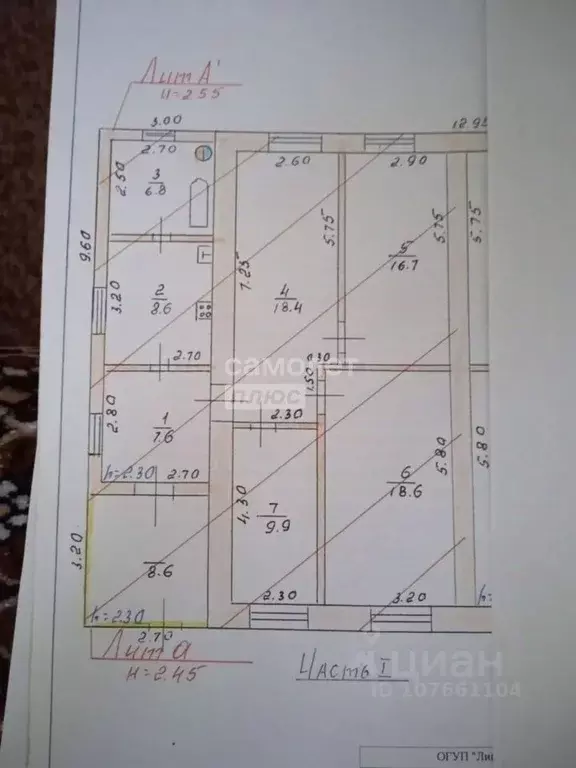 Лит А'
H=2.55
3.00
12.95
2.70
2.60
2.90
2.50
3
6.8
9.60
5.75
5.75
5.75
7.25
5
16.7
2
8.6
3.20
4
18.4
T
2.70
самолет
плюс
0.30
1.50
2.80
1
7.6
2.30
h=2.30
2.70
5.80
5.80
6
18.6
4.30
7
9.9
3.20
8.6
h=2.30
2.30
3.20
h=
2.70
Лит а
H=2.45
Часть I
циан
ID 107661104
ОГУП "Ли